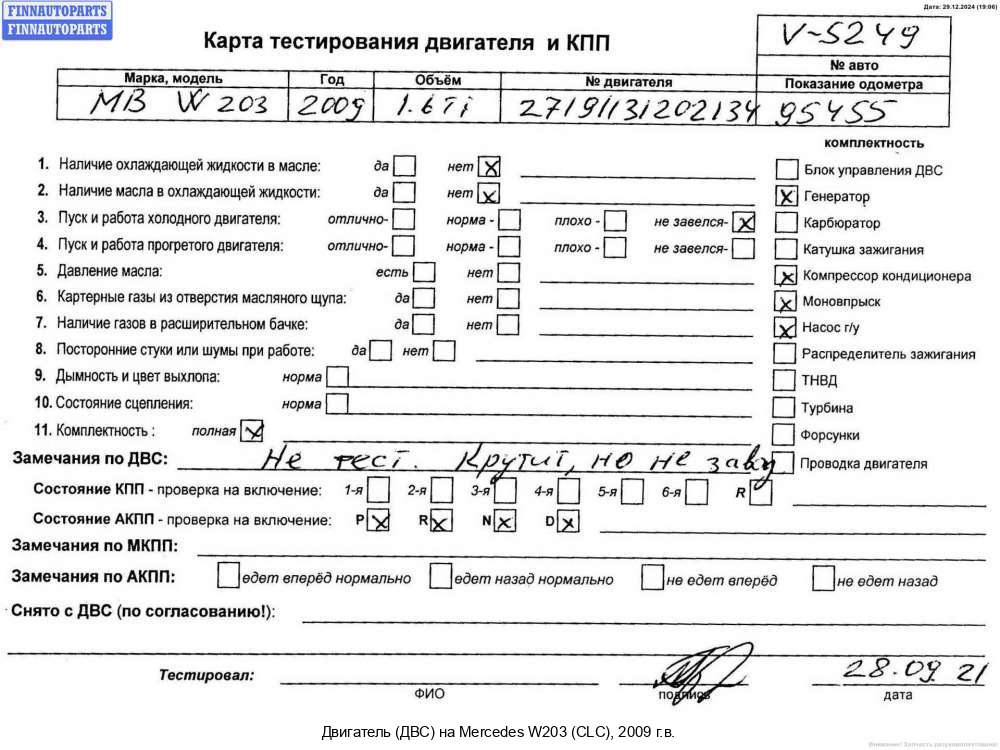 FINNAUTOPARTS
FINNAUTOPARTS
Дата: 29.12.2024 (19:06)
Карта тестирования двигателя и КПП
V-5249
№ авто
Марка, модель Год Объём № двигателя Показание одометра
MB W 203 2009 1.6Ti 27191131202134 95455
комплектность
1. Наличие охлаждающей жидкости в масле: да нет X Блок управления ДВС
2. Наличие масла в охлаждающей жидкости: да нет X X Генератор
3. Пуск и работа холодного двигателя: отлично- норма - плохо - не завелся- X Карбюратор
4. Пуск и работа прогретого двигателя: отлично- норма - плохо - не завелся- Катушка зажигания
5. Давление масла: есть нет X Компрессор кондиционера
6. Картерные газы из отверстия масляного щупа: да нет X Моновпрыск
7. Наличие газов в расширительном бачке: да нет X Насос г/у
8. Посторонние стуки или шумы при работе: да нет Распределитель зажигания
9. Дымность и цвет выхлопа: норма ТНВД
10. Состояние сцепления: норма Турбина
11. Комплектность : полная X Форсунки
Замечания по ДВС: Не тест. Крутит, но не завод Проводка двигателя
Состояние КПП - проверка на включение: 1-я 2-я 3-я 4-я 5-я 6-я R
Состояние АКПП - проверка на включение: P X R X N X D X
Замечания по МКПП:
Замечания по АКПП: едет вперёд нормально едет назад нормально не едет вперёд не едет назад
Снято с ДВС (по согласованию!):
Тестировал: 28.09 21
ФИО подпись дата
Двигатель (ДВС) на Mercedes W203 (CLC), 2009 г.в.
Внимание! Запчасть разукомплектована!